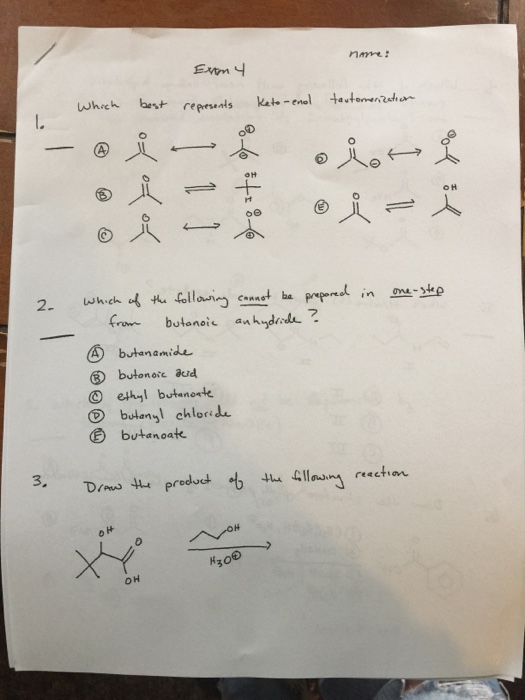 name:
Exam 4
1. Which best represents keto-enol tautomerization
A O ⟷ O⊕ ⊖
B O ⇌ OH H
C O ⟷ O⊖ ⊕
D O ⊖ ⟷ O⊖
E O ⇌ OH
2- Which of the following cannot be prepared in one-step
from butanoic anhydride?
A butanamide
B butanoic acid
C ethyl butanoate
D butanyl chloride
E butanoate
3. Draw the product of the following reaction
OH O OH
OH
H3O⊕